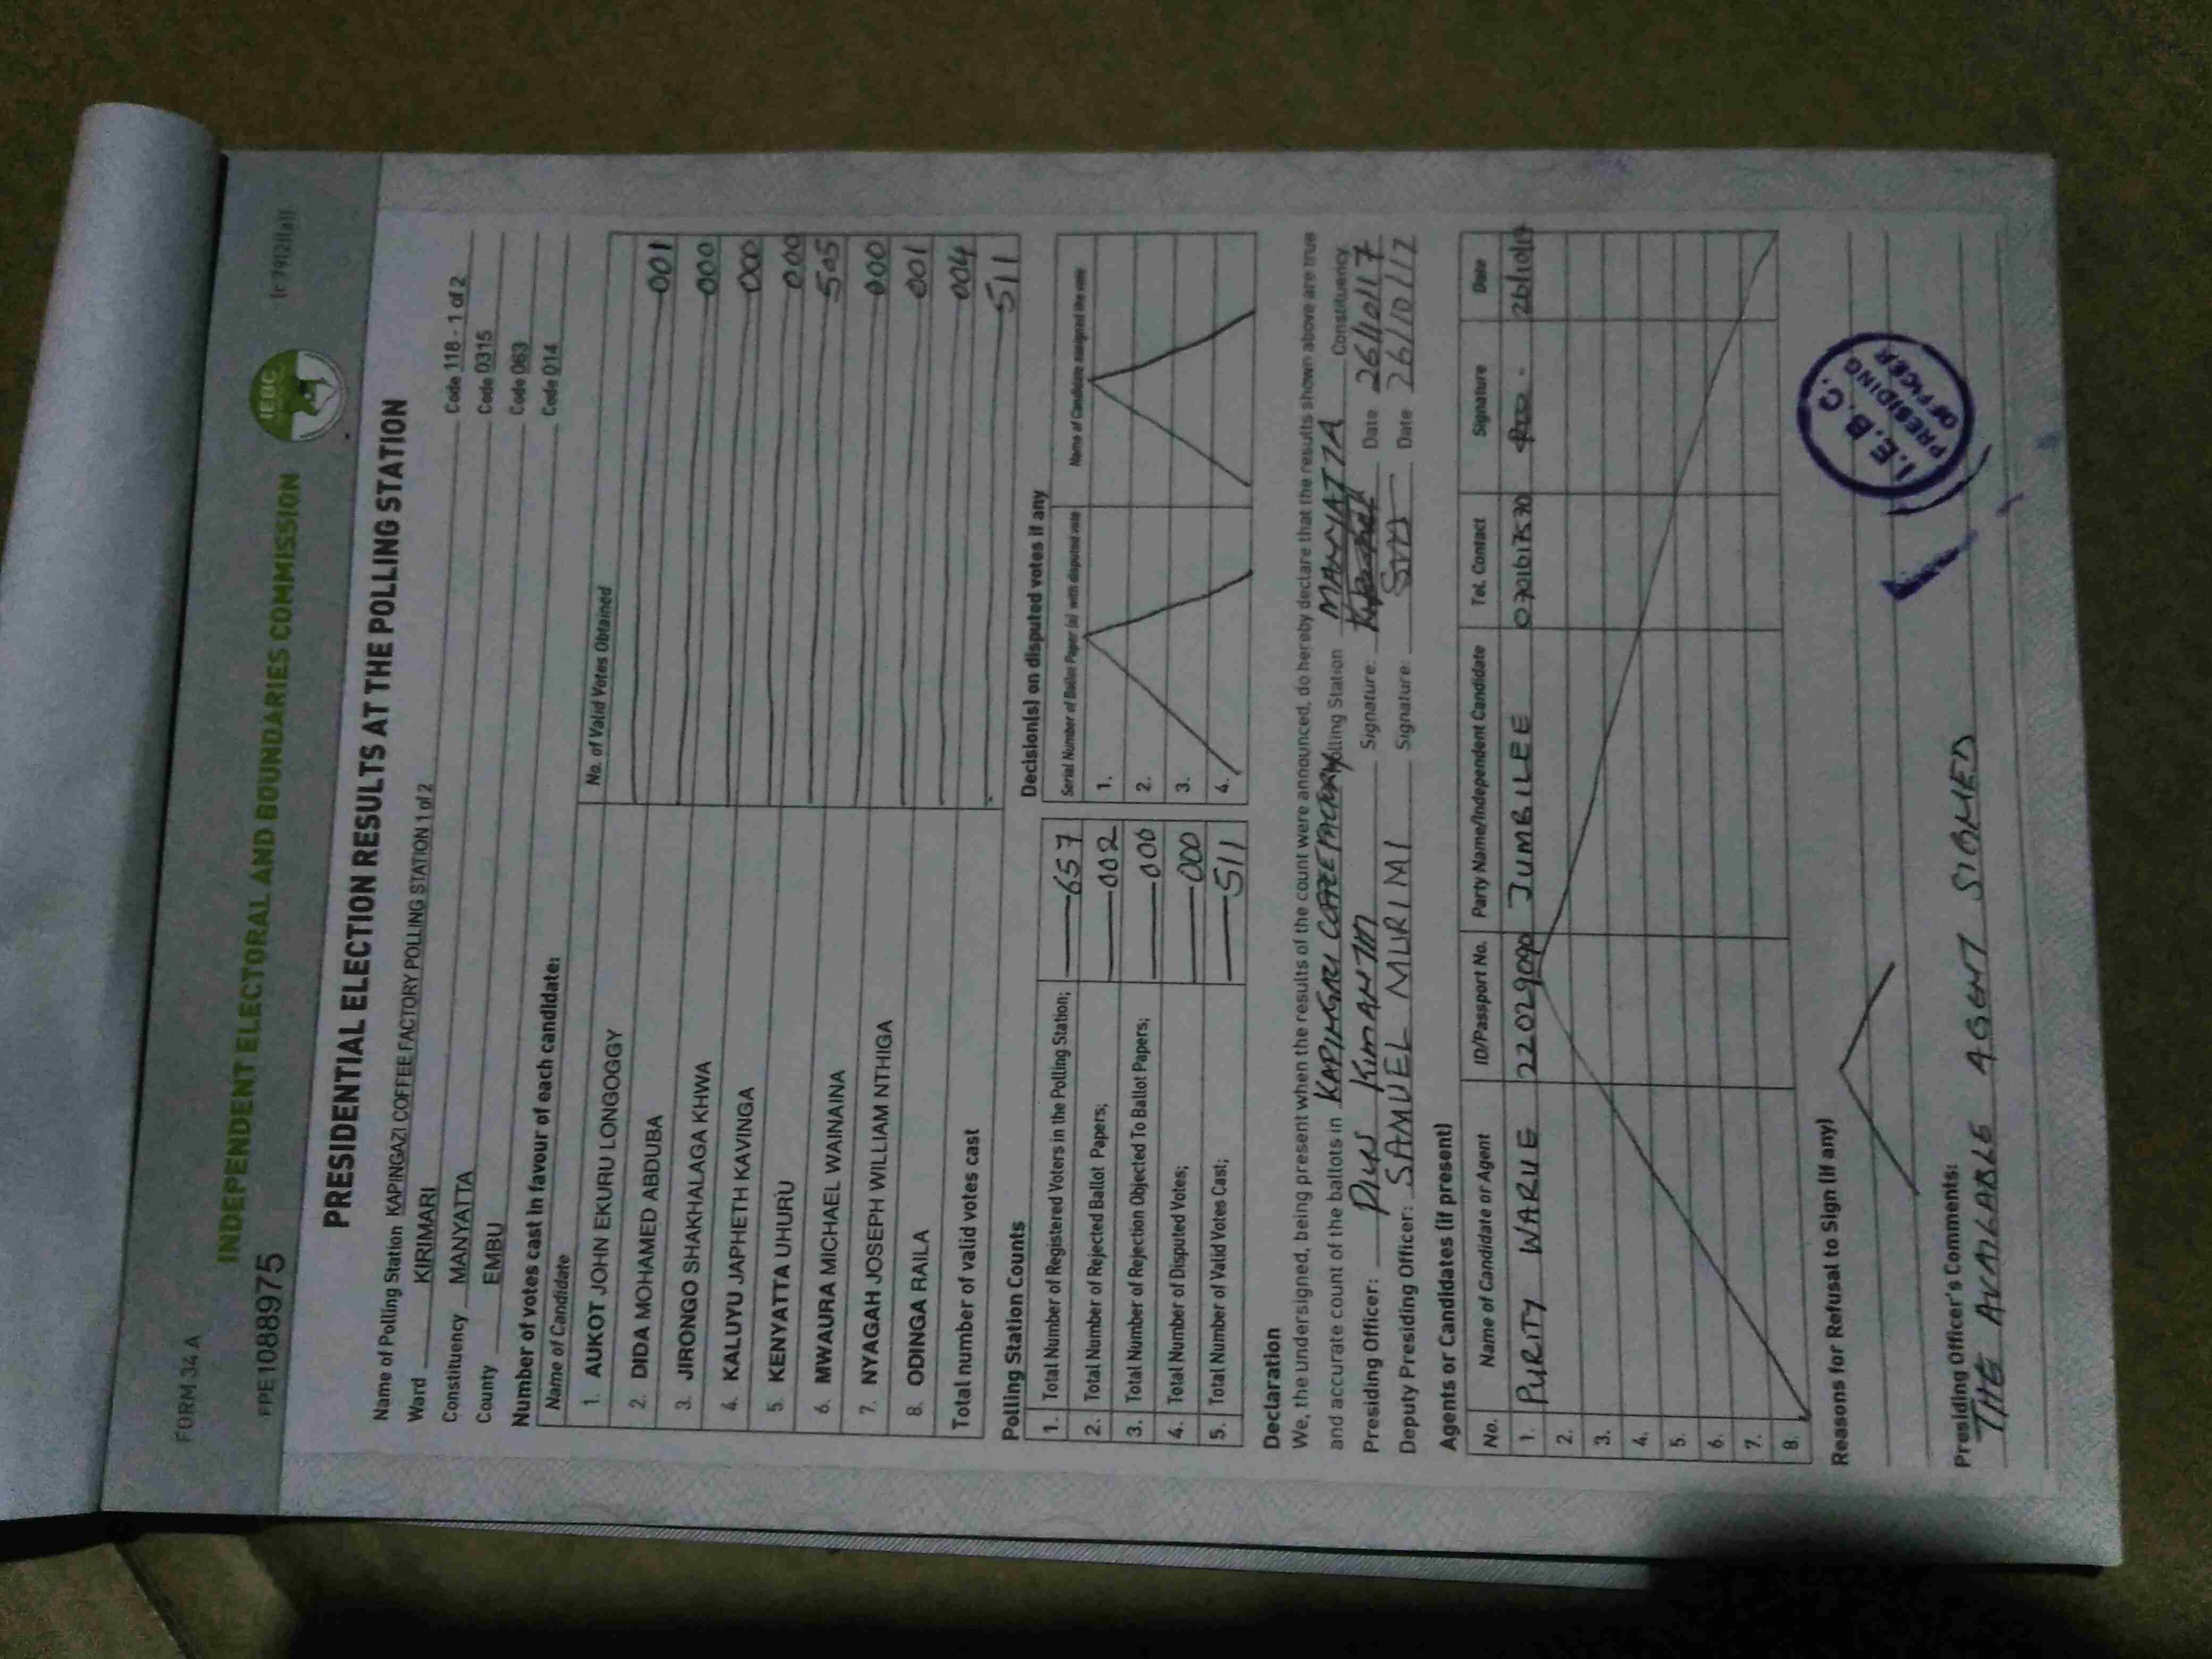 FORM 34 A
PPE1088975
INDEPENDENT ELECTORAL AND BOUNDARIES COMMISSION
IEBC
PRESIDENTIAL ELECTION RESULTS AT THE POLLING STATION
Name of Polling Station KAPINGAZI COFFEE FACTORY POLLING STATION 1 of 2 Code 118 - 1 of 2
Ward KIRIMARI Code 0315
Constituency MANYATTA Code 063
County EMBU Code 014
Number of votes cast in favour of each candidate:
Name of Candidate No. of Valid Votes Obtained
1. AUKOT JOHN EKURU LONGOGGY 001
2. DIDA MOHAMED ABDUBA 000
3. JIRONGO SHAKHALAGA KHWA 000
4. KALUYU JAPHETH KAVINGA 000
5. KENYATTA UHURU 505
6. MWAURA MICHAEL WAINAINA 000
7. NYAGAH JOSEPH WILLIAM NTHIGA 001
8. ODINGA RAILA 004
Total number of valid votes cast 511
Polling Station Counts
1. Total Number of Registered Voters in the Polling Station; 657
2. Total Number of Rejected Ballot Papers; 002
3. Total Number of Rejection Objected To Ballot Papers; 000
4. Total Number of Disputed Votes; 000
5. Total Number of Valid Votes Cast; 511
Decision(s) on disputed votes if any
Serial Number of Ballot Paper (s) with disputed vote Name of Candidate assigned the vote
1.
2.
3.
4.
Declaration
We, the undersigned, being present when the results of the count were announced, do hereby declare that the results shown above are true
and accurate count of the ballots in KAPINGAZI COFFEE FACTORY Polling Station MANYATTA Constituency
Presiding Officer: PIUS KIMANTHI Signature: Date 26/10/17
Deputy Presiding Officer: SAMUEL MURIMI Signature: Date 26/10/17
Agents or Candidates (if present)
No. Name of Candidate or Agent ID/Passport No. Party Name/Independent Candidate Tel. Contact Signature Date
1. PURITY WARUE 22029090 JUMBILEE 26/10/17
2.
3.
4.
5.
6.
7.
8.
Reasons for Refusal to Sign (if any)
I.E.B.C.
PRESIDING
OFFICER
Presiding Officer's Comments:
THE AVAILABLE AGENT SIGNED